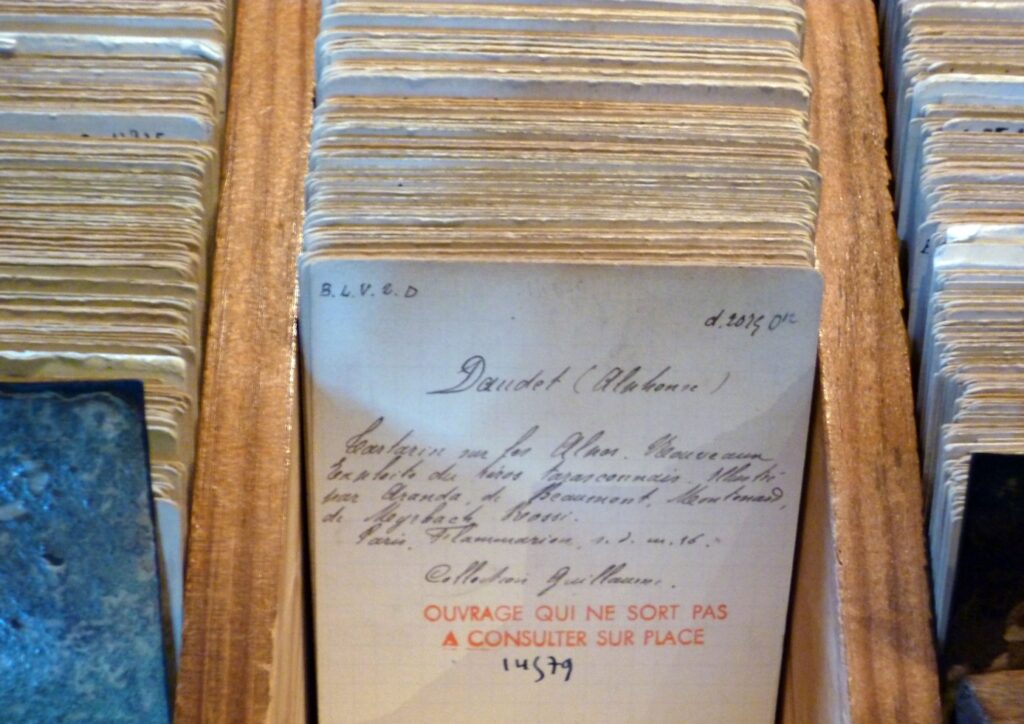 B. L. V. 2. D
Daudet (Alphonse)
Tartarin sur les Alpes. Nouveaux
Exploits du héros tarasconnais. Illustré
par Aranda, de Beaumont, Montenard,
de Myrbach, Rossi.
Paris, Flammarion, s. d. in-16.
Collection Guillaume.
OUVRAGE QUI NE SORT PAS
A CONSULTER SUR PLACE
14579